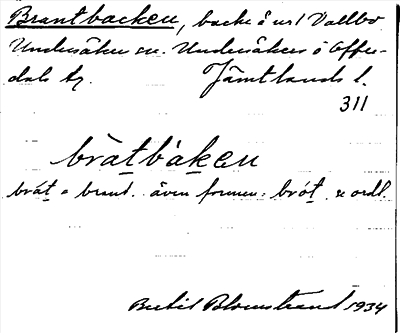 Brantbacken, backe å url Vallbo
Undersåker sn. Undersåkers o Offer-
dals tg. Jämtlands l.
311
bràtbàken
brát = brant. även formen: brót. se ordl.
Bertil Blomstrand 1934